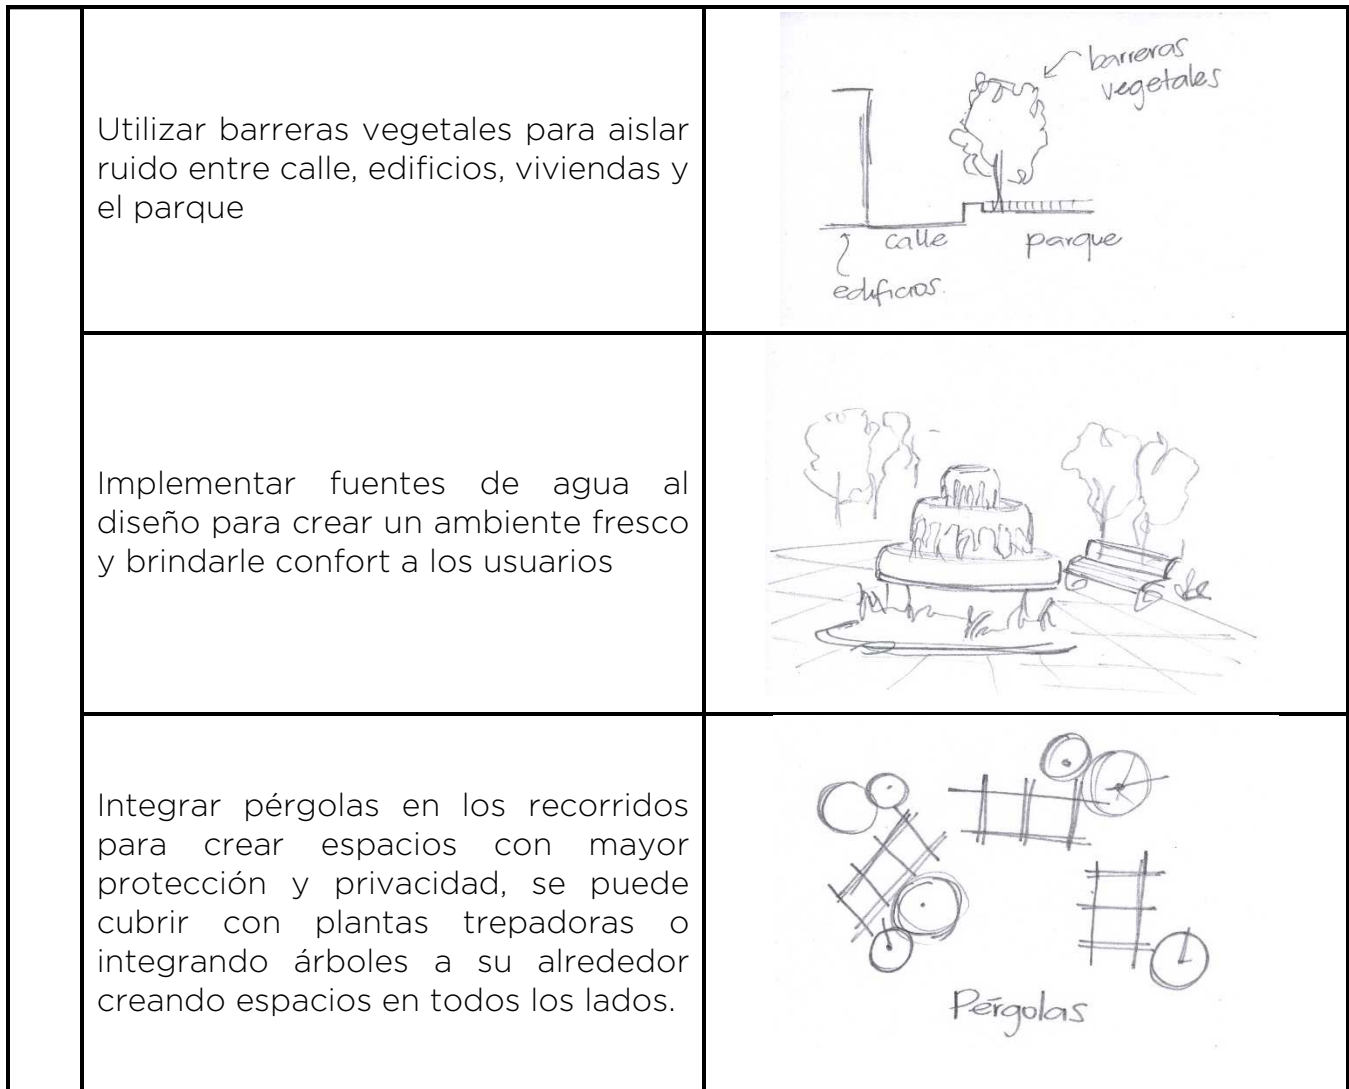 Utilizar barreras vegetales para aislar
ruido entre calle, edificios, viviendas y
el parque
barreras
vegetales
calle
parque
edificios.
Implementar fuentes de agua al
diseño para crear un ambiente fresco
y brindarle confort a los usuarios
Integrar pérgolas en los recorridos
para crear espacios con mayor
protección y privacidad, se puede
cubrir con plantas trepadoras o
integrando árboles a su alrededor
creando espacios en todos los lados.
Pérgolas